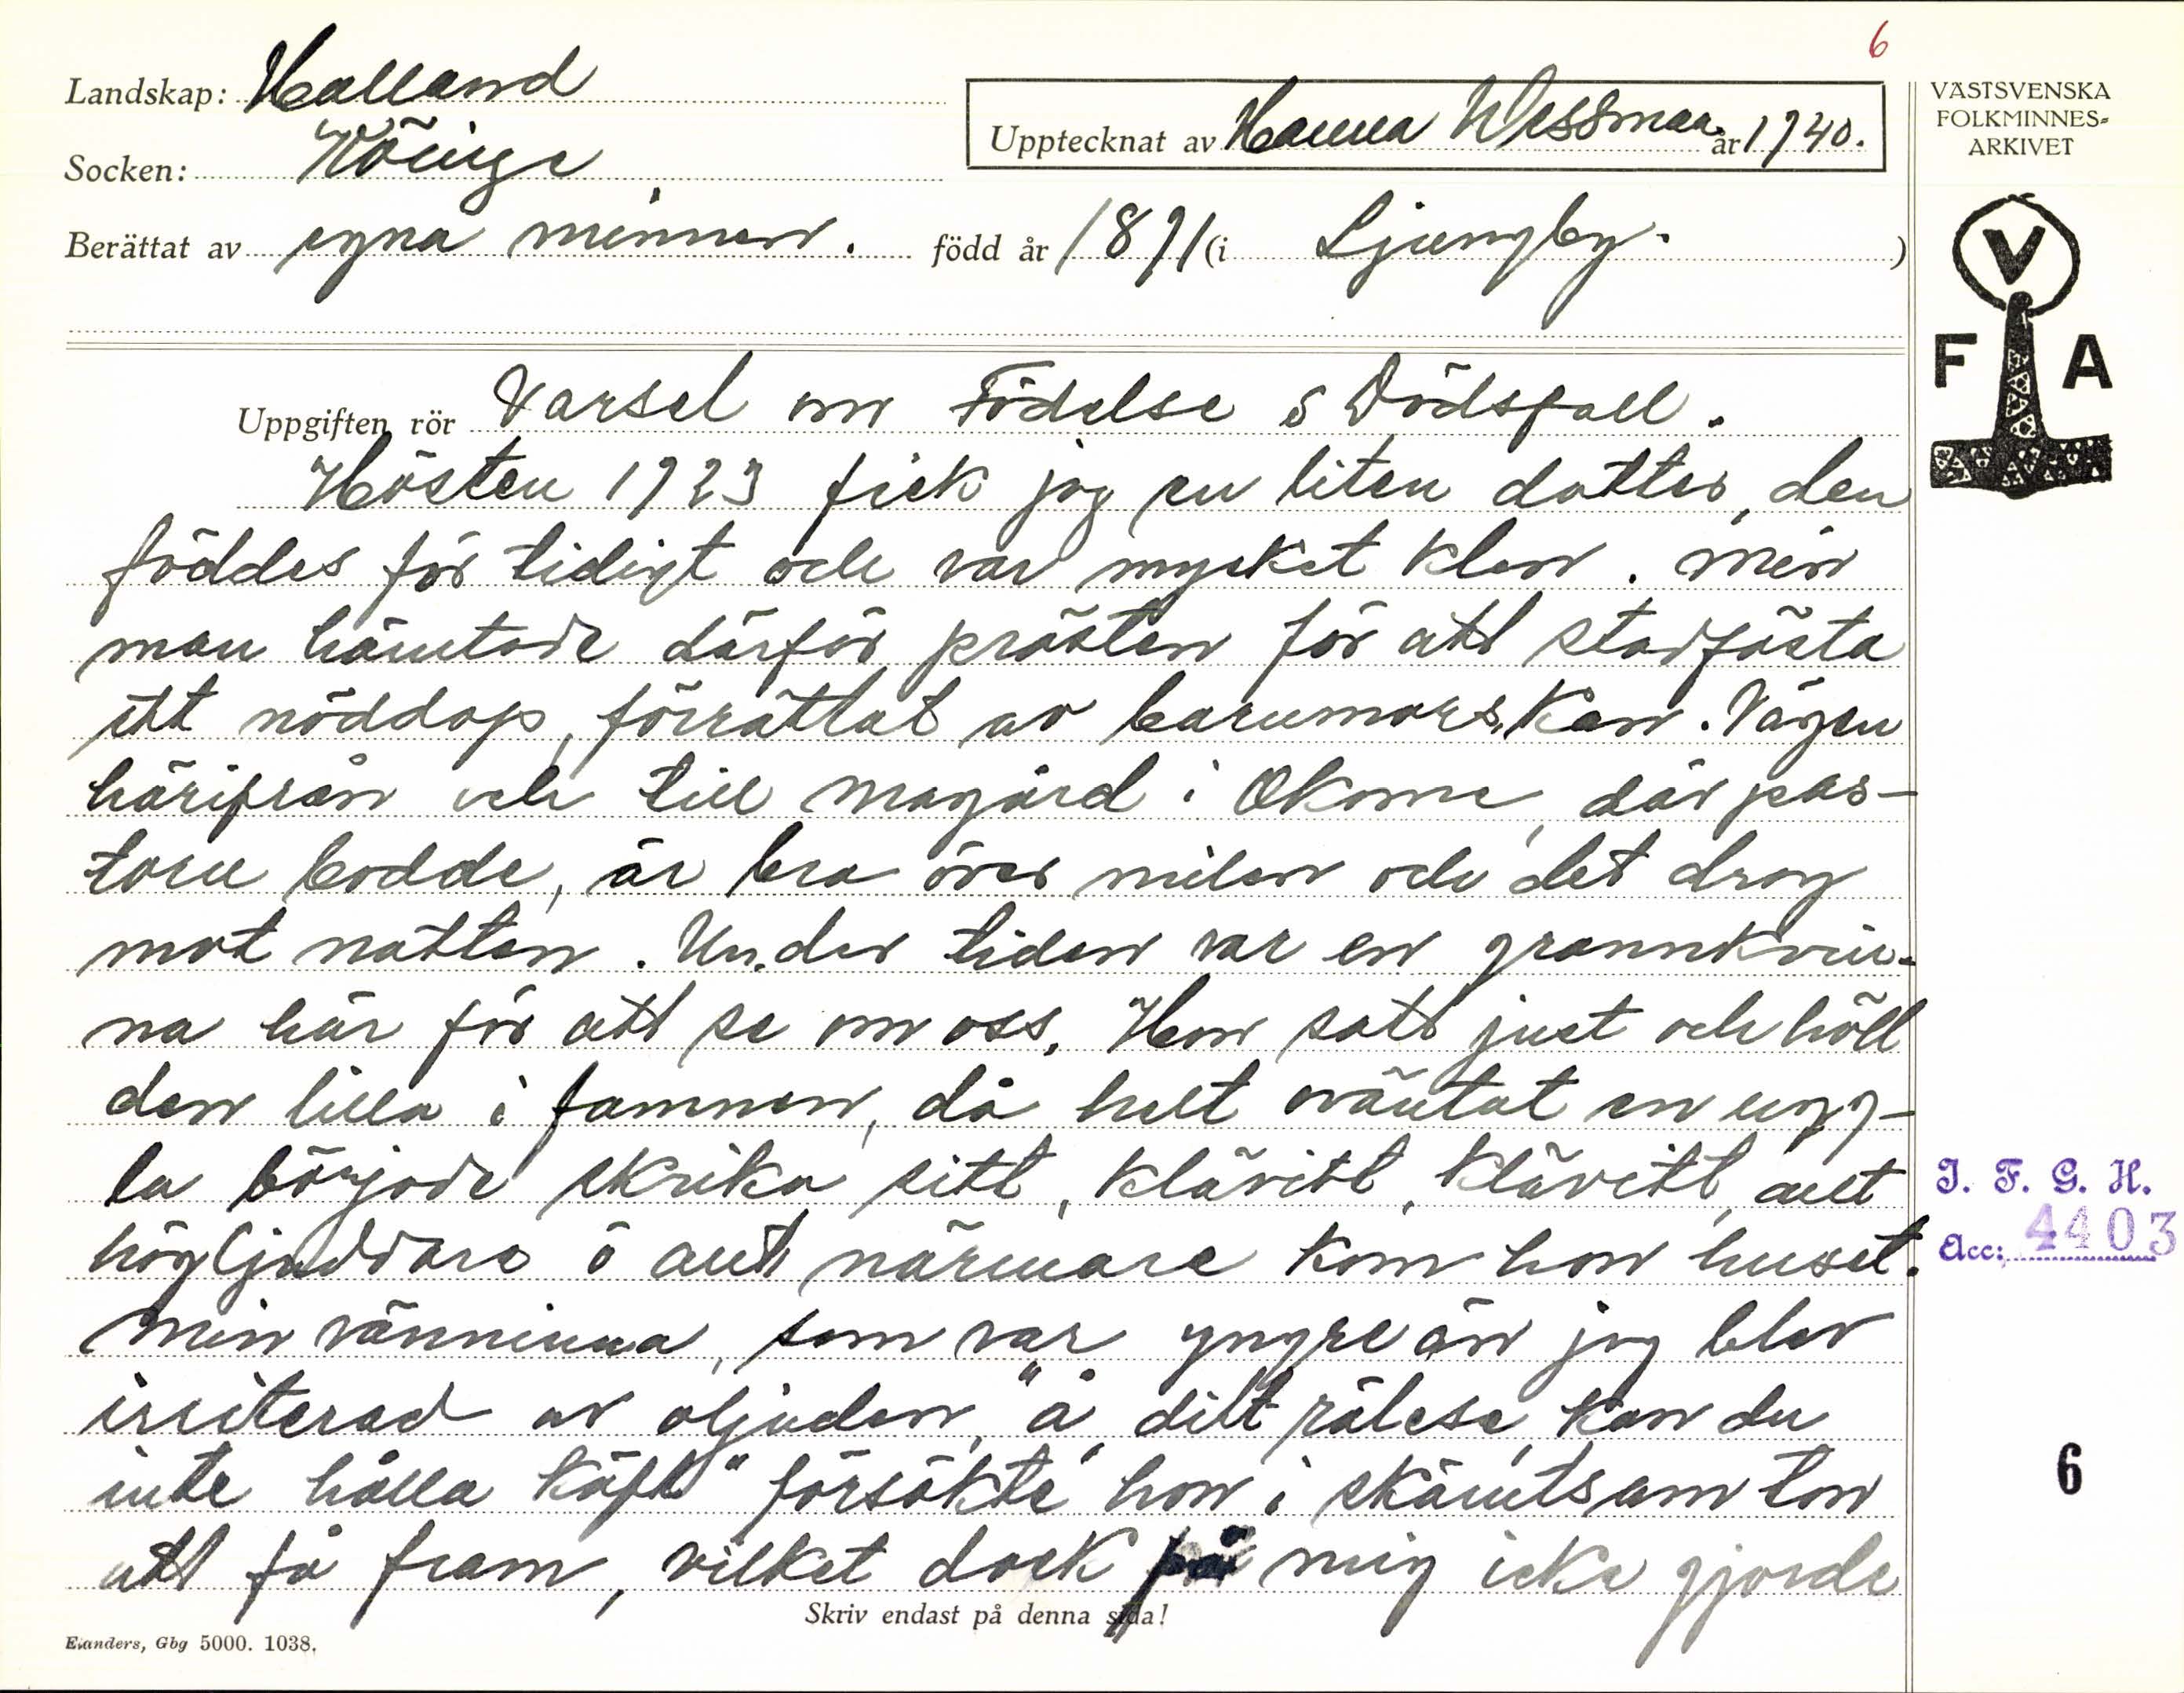 6
Landskap: Halland
Upptecknat av Hanna Wessman år 1940.
Socken: Köinge
Berättat av egna minnen. född år 1891 (i Ljungby. )
VÄSTSVENSKA
FOLKMINNES-
ARKIVET
V
F A
Uppgiften rör Varsel om Födelse o Dödsfall.
Hösten 1923 fick jag en liten dotter, den
föddes för tidigt och var mycket klen. Min
man hämtade därför prästen för att stadfästa
ett nöddop, förrättat av barnmorskan. Vägen
härifrån och till Magård i Okome, där pas-
torn bodde, är bra över milen och det drog
mot natten. Under tiden var en grannkvin-
na här för att se om oss. Hon satt just och höll
den lilla i famnen, då helt oväntat en ugg-
la började skrika sitt, klävitt, klävitt, allt
högljuddare o allt närmare kom hon huset.
Min väninna, som var yngre än jag blev
irriterad av oljuden, "å, ditt rälese, kan du
inte hålla käft" försökte hon i skämtsam ton
att få fram, vilket dock på mig icke gjorde
Skriv endast på denna sida!
Elanders, Gbg 5000. 1038.
I. F. G. H.
Acc: 4403
6